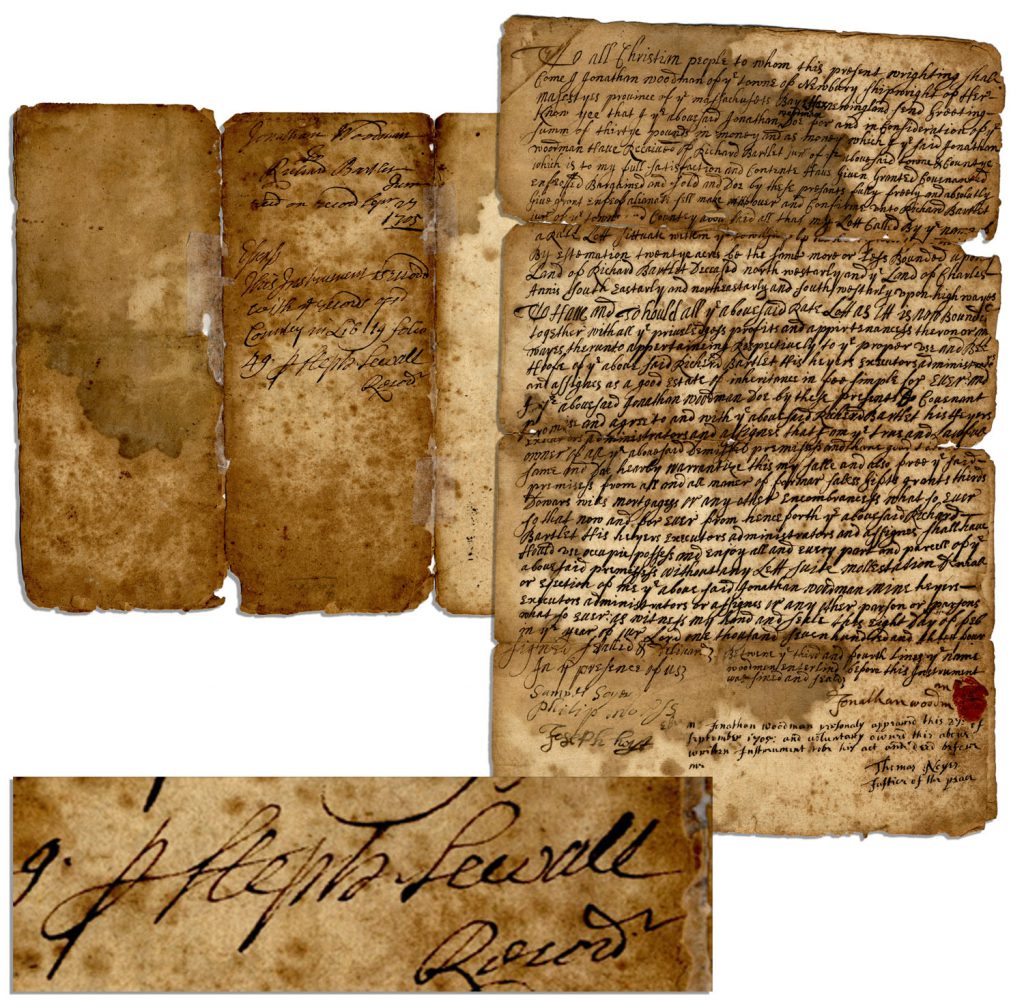 Jonathan Woodman
to
Richard Bartlet
Jun
on record Sepr 27
1705
Essex
This Instrument is
with ye records of sd
County in Lib 19 folio
49 p Steph Sewall
Recordr
To all Christian people to whom this present wrighting shall
Come I Jonathan woodman of ye towne of Newbury shipwright of Her
majestyes province of ye massachusets Bay send Greeting
Know yee that I ye abovesaid Jonathan Doe for and in Consideration of ye
woodman
summ of thirtye pounds in money and as money which I ye said Jonathan
woodman Have Received of Richard Bartlet junr of ye abovesaid towne & Countye
which is to my full satisfaction and Contente Have Given Granted Covenanted
enfeofed Bargained and sold and Doe by these presents fully freely and absolutly
give grant sell make over and Confirme unto Richard Bartlet
junr of ye towne and Countey abovesaid all that my Lott Called By ye name
a Rate Lott sittuate within ye
By Estemation twentye acres be the same more or Less Bounded upon
Land of Richard Bartlet Deceased north westarly and ye Land of Charles
Annis South Eastarly and northeastarly and south westerly upon high wayes
To Have and to hould all ye abovesaid Rate Lott as itt is now Bounded
together with all ye priviledges profits and appirtenances theron or in
wayes therunto appertaineing Respectively to ye proper use and Bee
Hoofe of ye above said Richard Bartlet His heyers Executors administrators
and assignes as a good Estate of inheritance in fee simple for Ever and
I ye abovesaid Jonathan woodman Doe by these presents Covenant
promise and agree to and with ye abovesaid Richard Bartlet his Heyers
Executors administrators and assignes that I am ye true and Lawfull
owner of all ye abovesaid Demitted premises and have good
same and Doe hearby warrantye this my salle and also free ye said
premises from all and all maner of formar salles gifts grants thirds
Dowars wils mortgages or any other Encombrances what so Ever
so that now and for Ever from henceforth ye abovesaid Richard
Bartlet His heyers Executors administrators and assignes shall have
Hould use occupie possess and enjoy all and every part and parcell of ye
abovesaid premises without any Lett suite mollestation Deniall
or Ejection of me ye above said Jonathan woodman mine heyers
Executors administrators or assignes or any other parson or parsons
what so Ever as witness my Hand and seale this Eight day of feb
in ye year of our Lord one thousand seven hundred and
signed sealed & Delivard
In ye presence of us
Betwene ye third and fourth lines ye name
woodman enterlined before this Instrument
was signed and sealed
Jonathan woodman
Joseph
mr Jonathan woodman personaly appeared this 27 of
September 1705: and voluntaty owned this above
written Instrument to be his act and deed before
me
Thomas Noyes
Justice of the peace
9. p Steph Sewall
Recordr